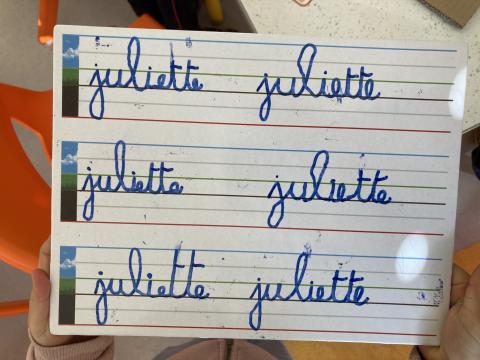 juliette juliette
juliette juliette
juliette juliette